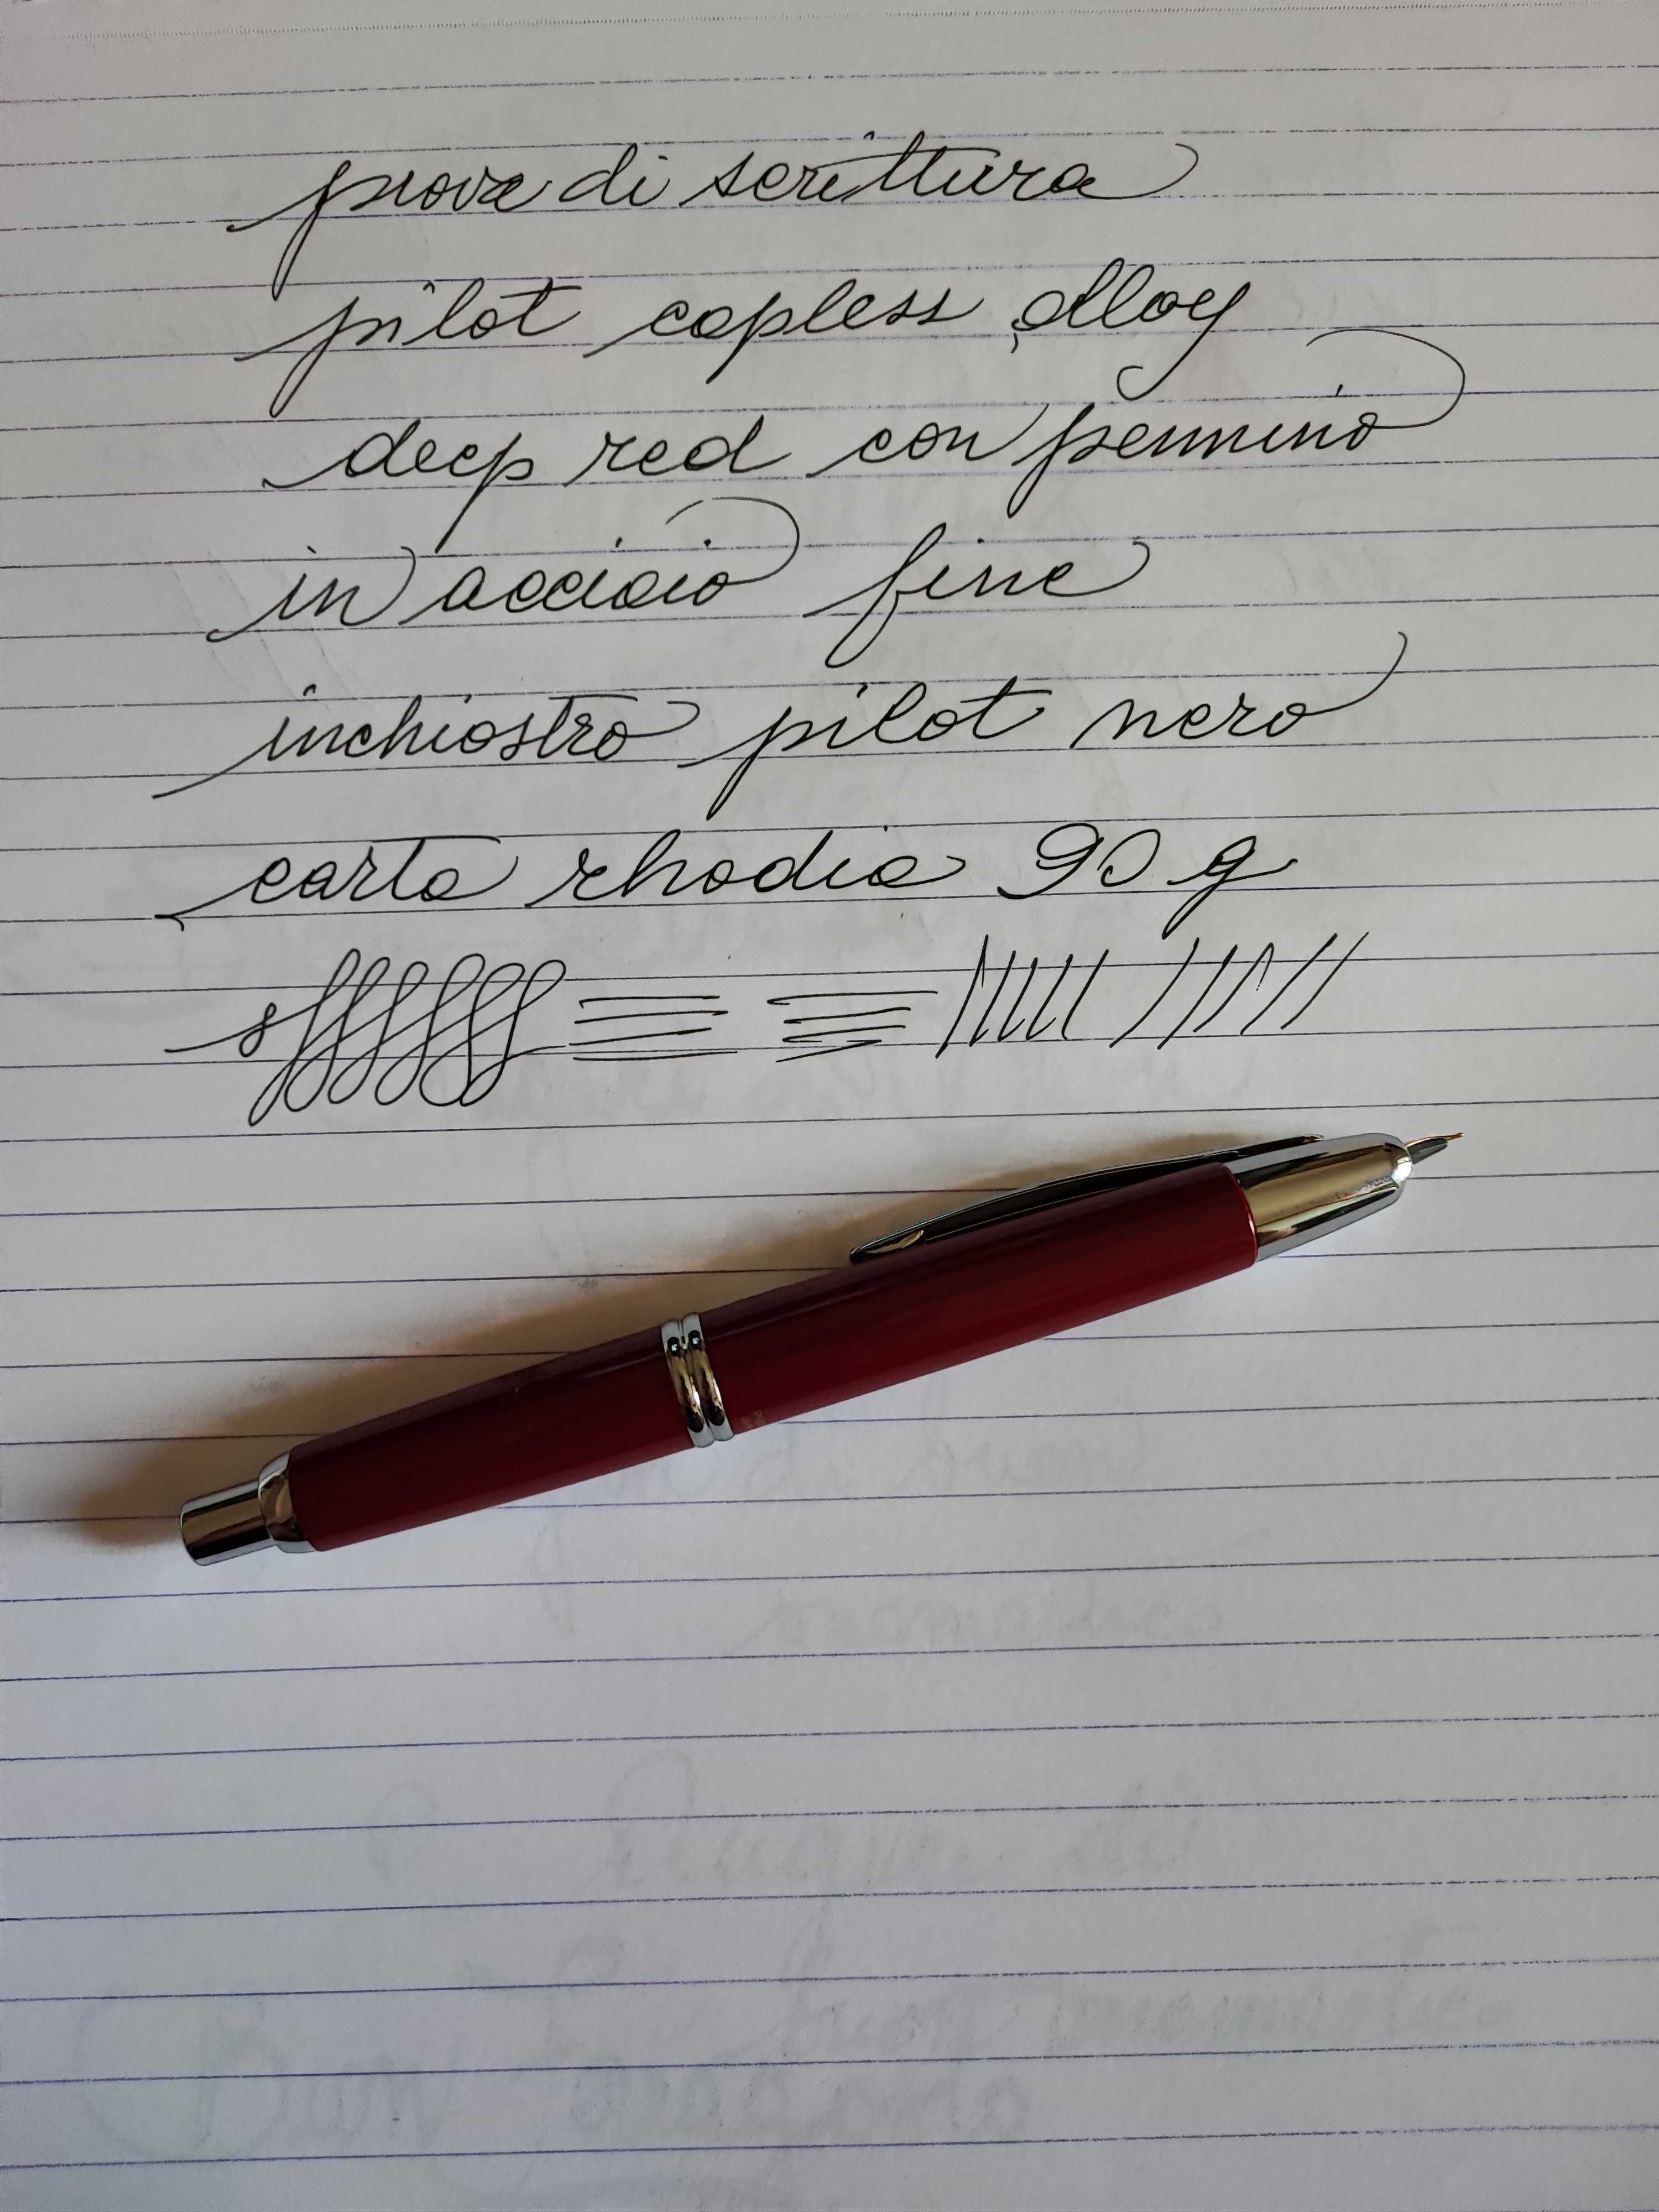 prova di scrittura
pilot capless alloy
deep red con pennino
in acciaio fine
inchiostro pilot nero
carta rhodia 90 g